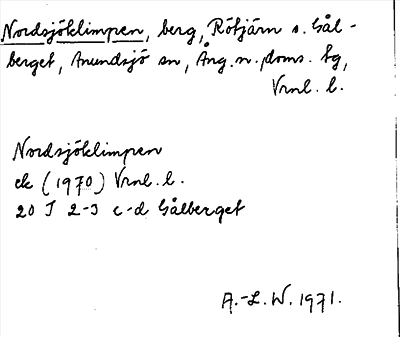 Nordsjöklimpen, berg, Rötjärn o. Gål-
berget, Anundsjö sn, Ång. n. doms. tg,
Vrnl. l.
Nordsjöklimpen
ek (1970) Vrnl. l.
20 J 2-3 c-d Gålberget
A.-L. W. 1971.